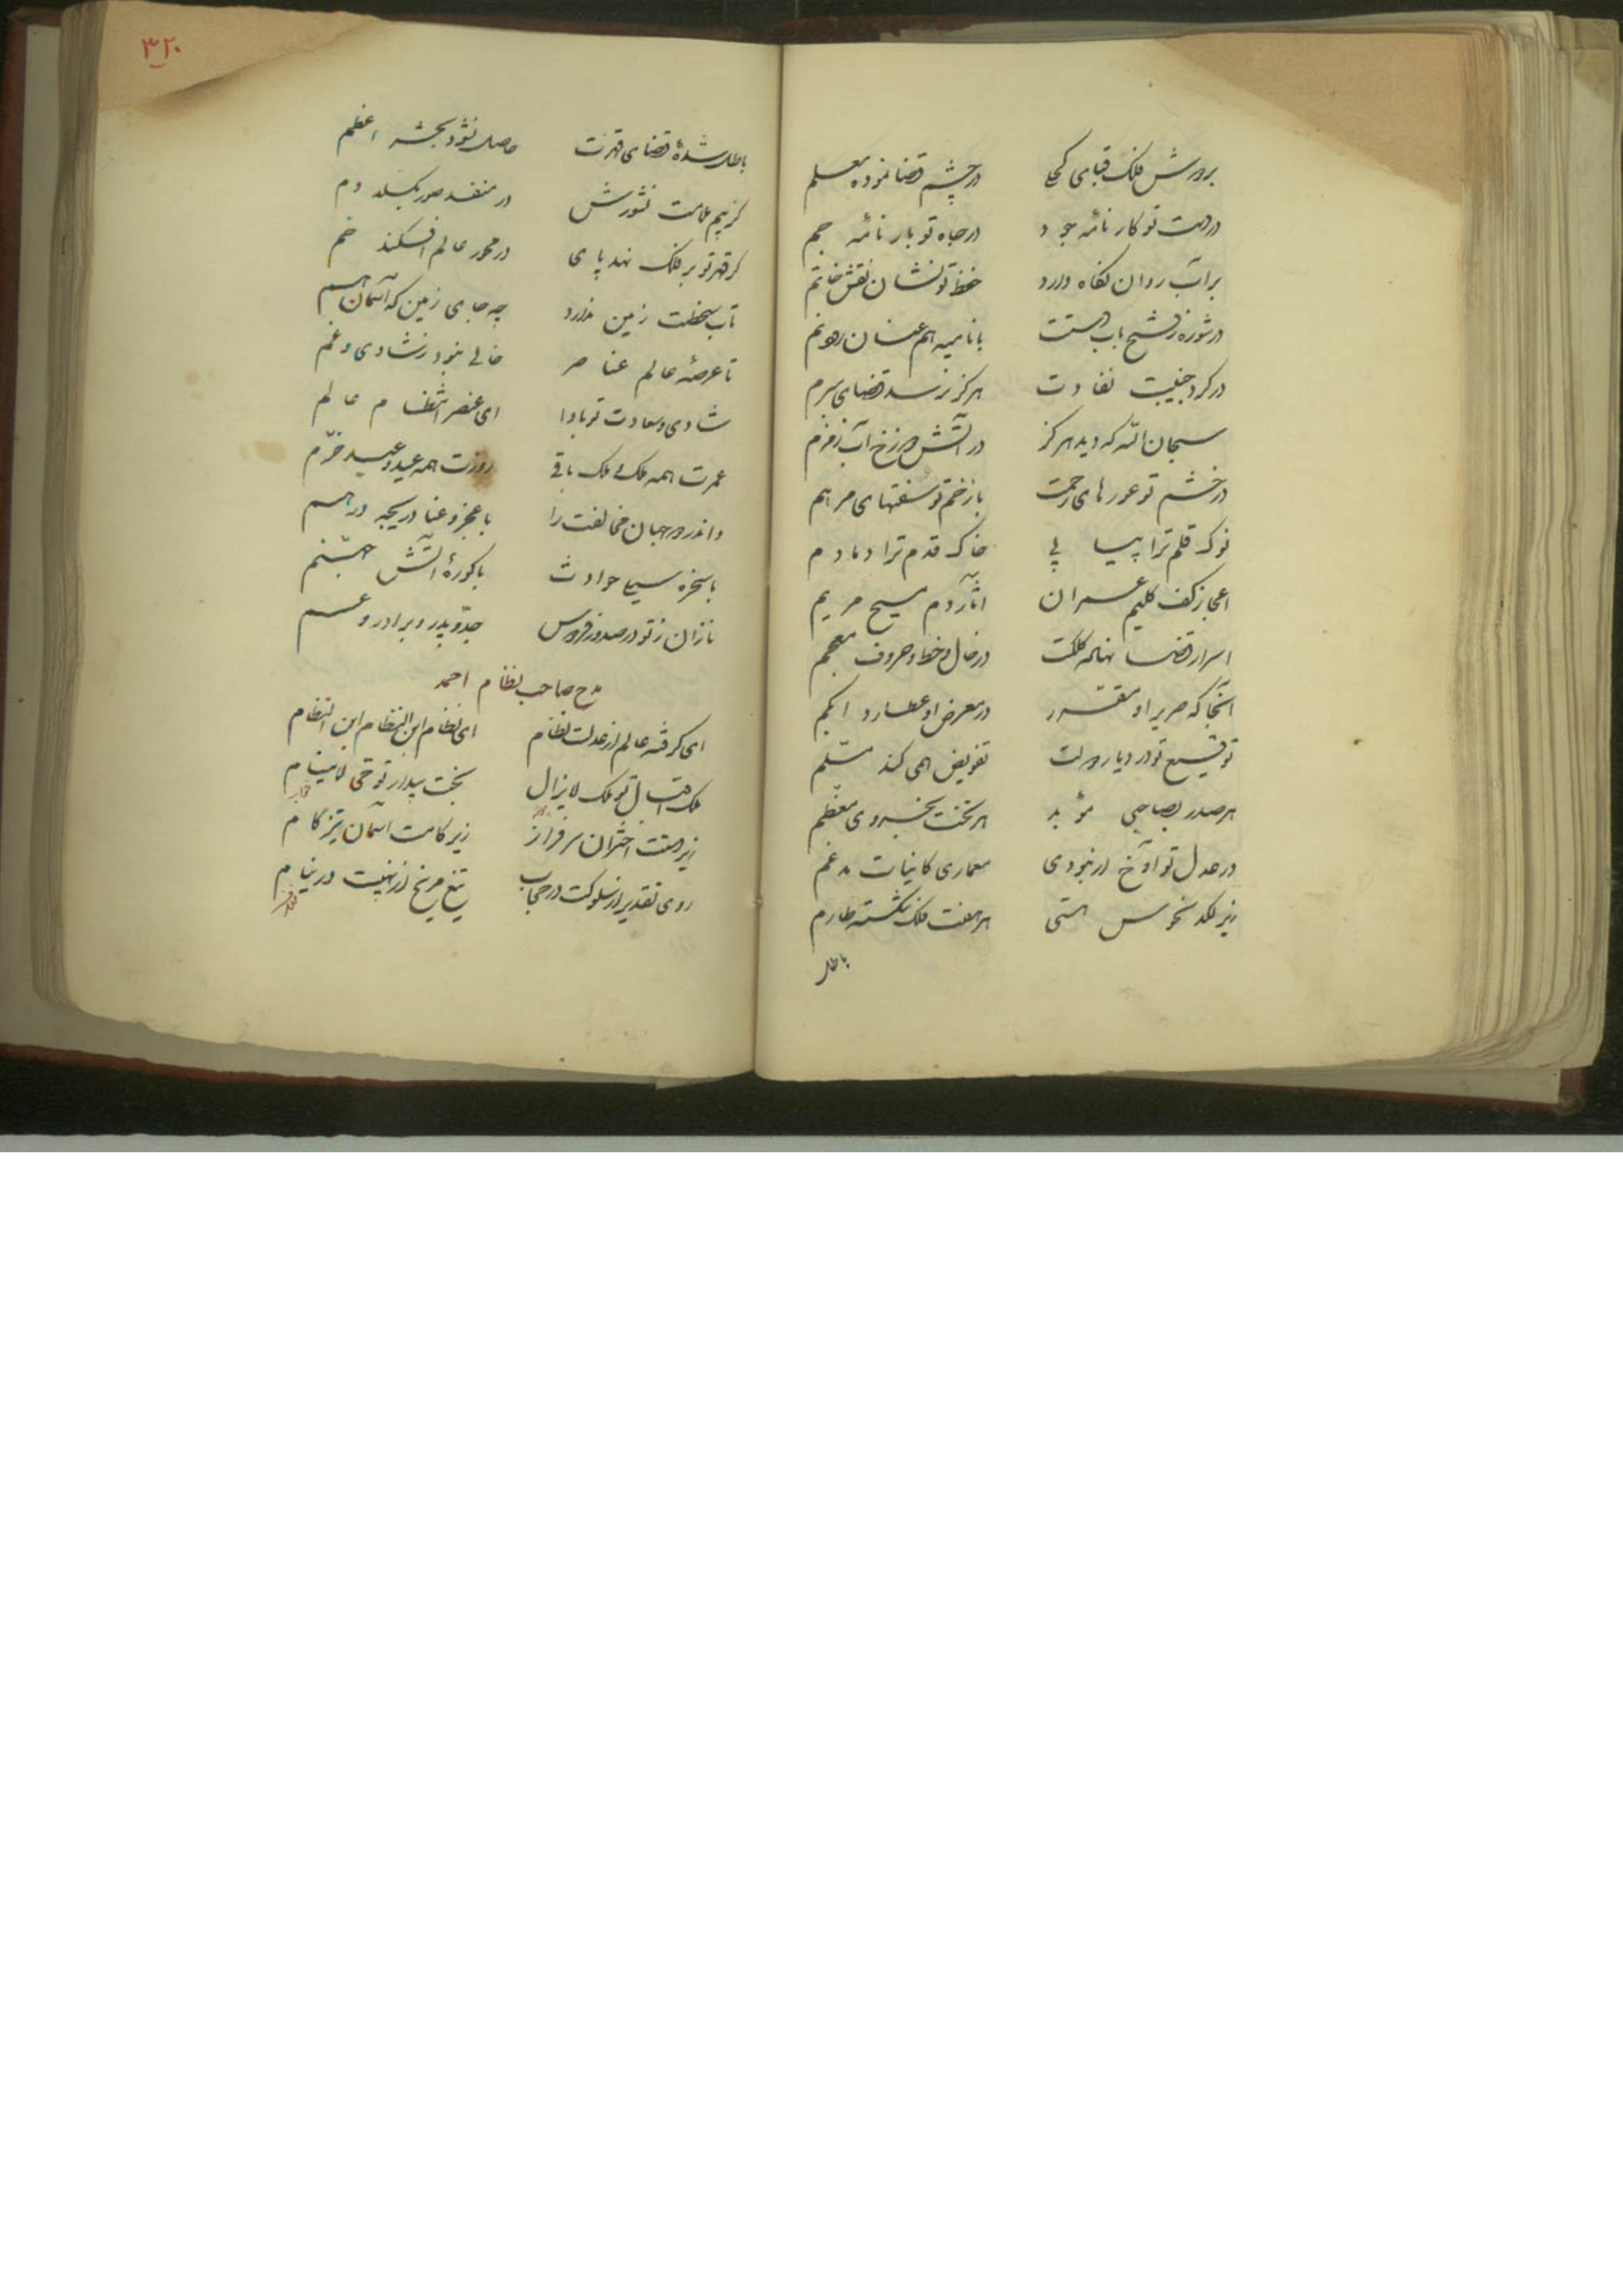 بر دوش فلک قبای کحلی در چشم قضا نموده معلم
در دست تو کارنامهٔ جود در جاه تو بارنامهٔ جم
بر آب روان نگاه دارد حفظ تو نشان نقش خاتم
در شوره ز رشح باب دستت با نامیه هم عنان رود نم
در گرد جنیبت نفاذت هرگز نرسد قضای مبرم
سبحان الله که دید هرگز در آتش دوزخ آب زمزم
در خشم تو عورهای رحمت با زخم تو سفتهای مرهم
نوک قلم ترا پیاپی خاک قدم ترا دمادم
اعجاز کف کلیم عمران آثار دم مسیح مریم
اسرار قضا نهاده کلکت در خال و خط و حروف معجم
آنجا که صریر او مقرر در معرض او عطارد ابکم
توقیع تو در دیار دولت تفویض همی کند مسلم
هر صدر بصاحبی مؤید هر تخت بخسروی معظم
در عدل تو ا ارنبودی معماری کاینات مدغم
زیر لگد نحوس هستی هر هفت فلک نگشته طارم
باطل
۳۲۰
باطل شدهٔ قضای قهرت حاصل نشود بحشر اعظم
گر بیم سلامت نشورش در منفذ صور بگسلد دم
گر قهر تو بر فلک نهد پای در محور عالم افکند خم
تاب سخطت زمین ندارد چه جای زمین که آسمان هم
تا عرصهٔ عالم عناصر خالی نبود ز شادی و غم
شادی و سعادت تو بادا ای عنصر انتظام عالم
عمرت همه ملک و ملک باقی روزت همه عید و عید خرم
واندر دو جهان مخالفت را با عجز و عنا دریچه درهم
با سخره سیلی حوادث با کورهٔ آتش جهنم
نازان ز تو در صدور فردوس جد و پدر و برادر و عم
مدح صاحب نظام احمد
ای گرفته عالم از عدلت نظام ای نظام ابن النظام ابن النظام
ملک اقبال تو ملک لایزال بخت بیدار تو حی لاینام
زیر دستت اختران سرفراز زیر کامت آسمان تیز گام
روی تقدیر از سلوکت در حجاب تیغ مریخ از نهیبت در نیام